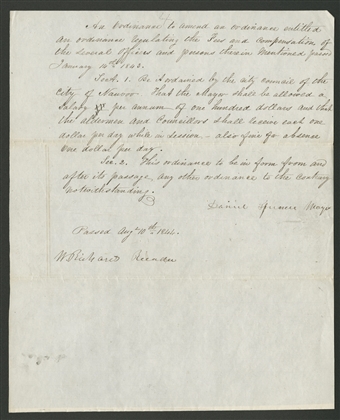 An Ordinance to amend an ordinance entitled
an ordinance regulating the Fees and compensation of
the several officers and persons therein mentioned passed
January 14th 1843.
Sec. 1. Be it ordained by the city council of the
City of Nauvoo. That the Mayor shall be allowed a
Salary per annum of one hundred dollars and that
the aldermen and Councillors shall receive each one
dollar per day while in session - also fine for absence
one dollar per day.
Sec. 2. This ordinance to be in force from and
after its passage, any other ordinance to the contrary
notwithstanding.
Daniel Spencer Mayor
Passed Augt 10th. 1844.
W Richards Recorder